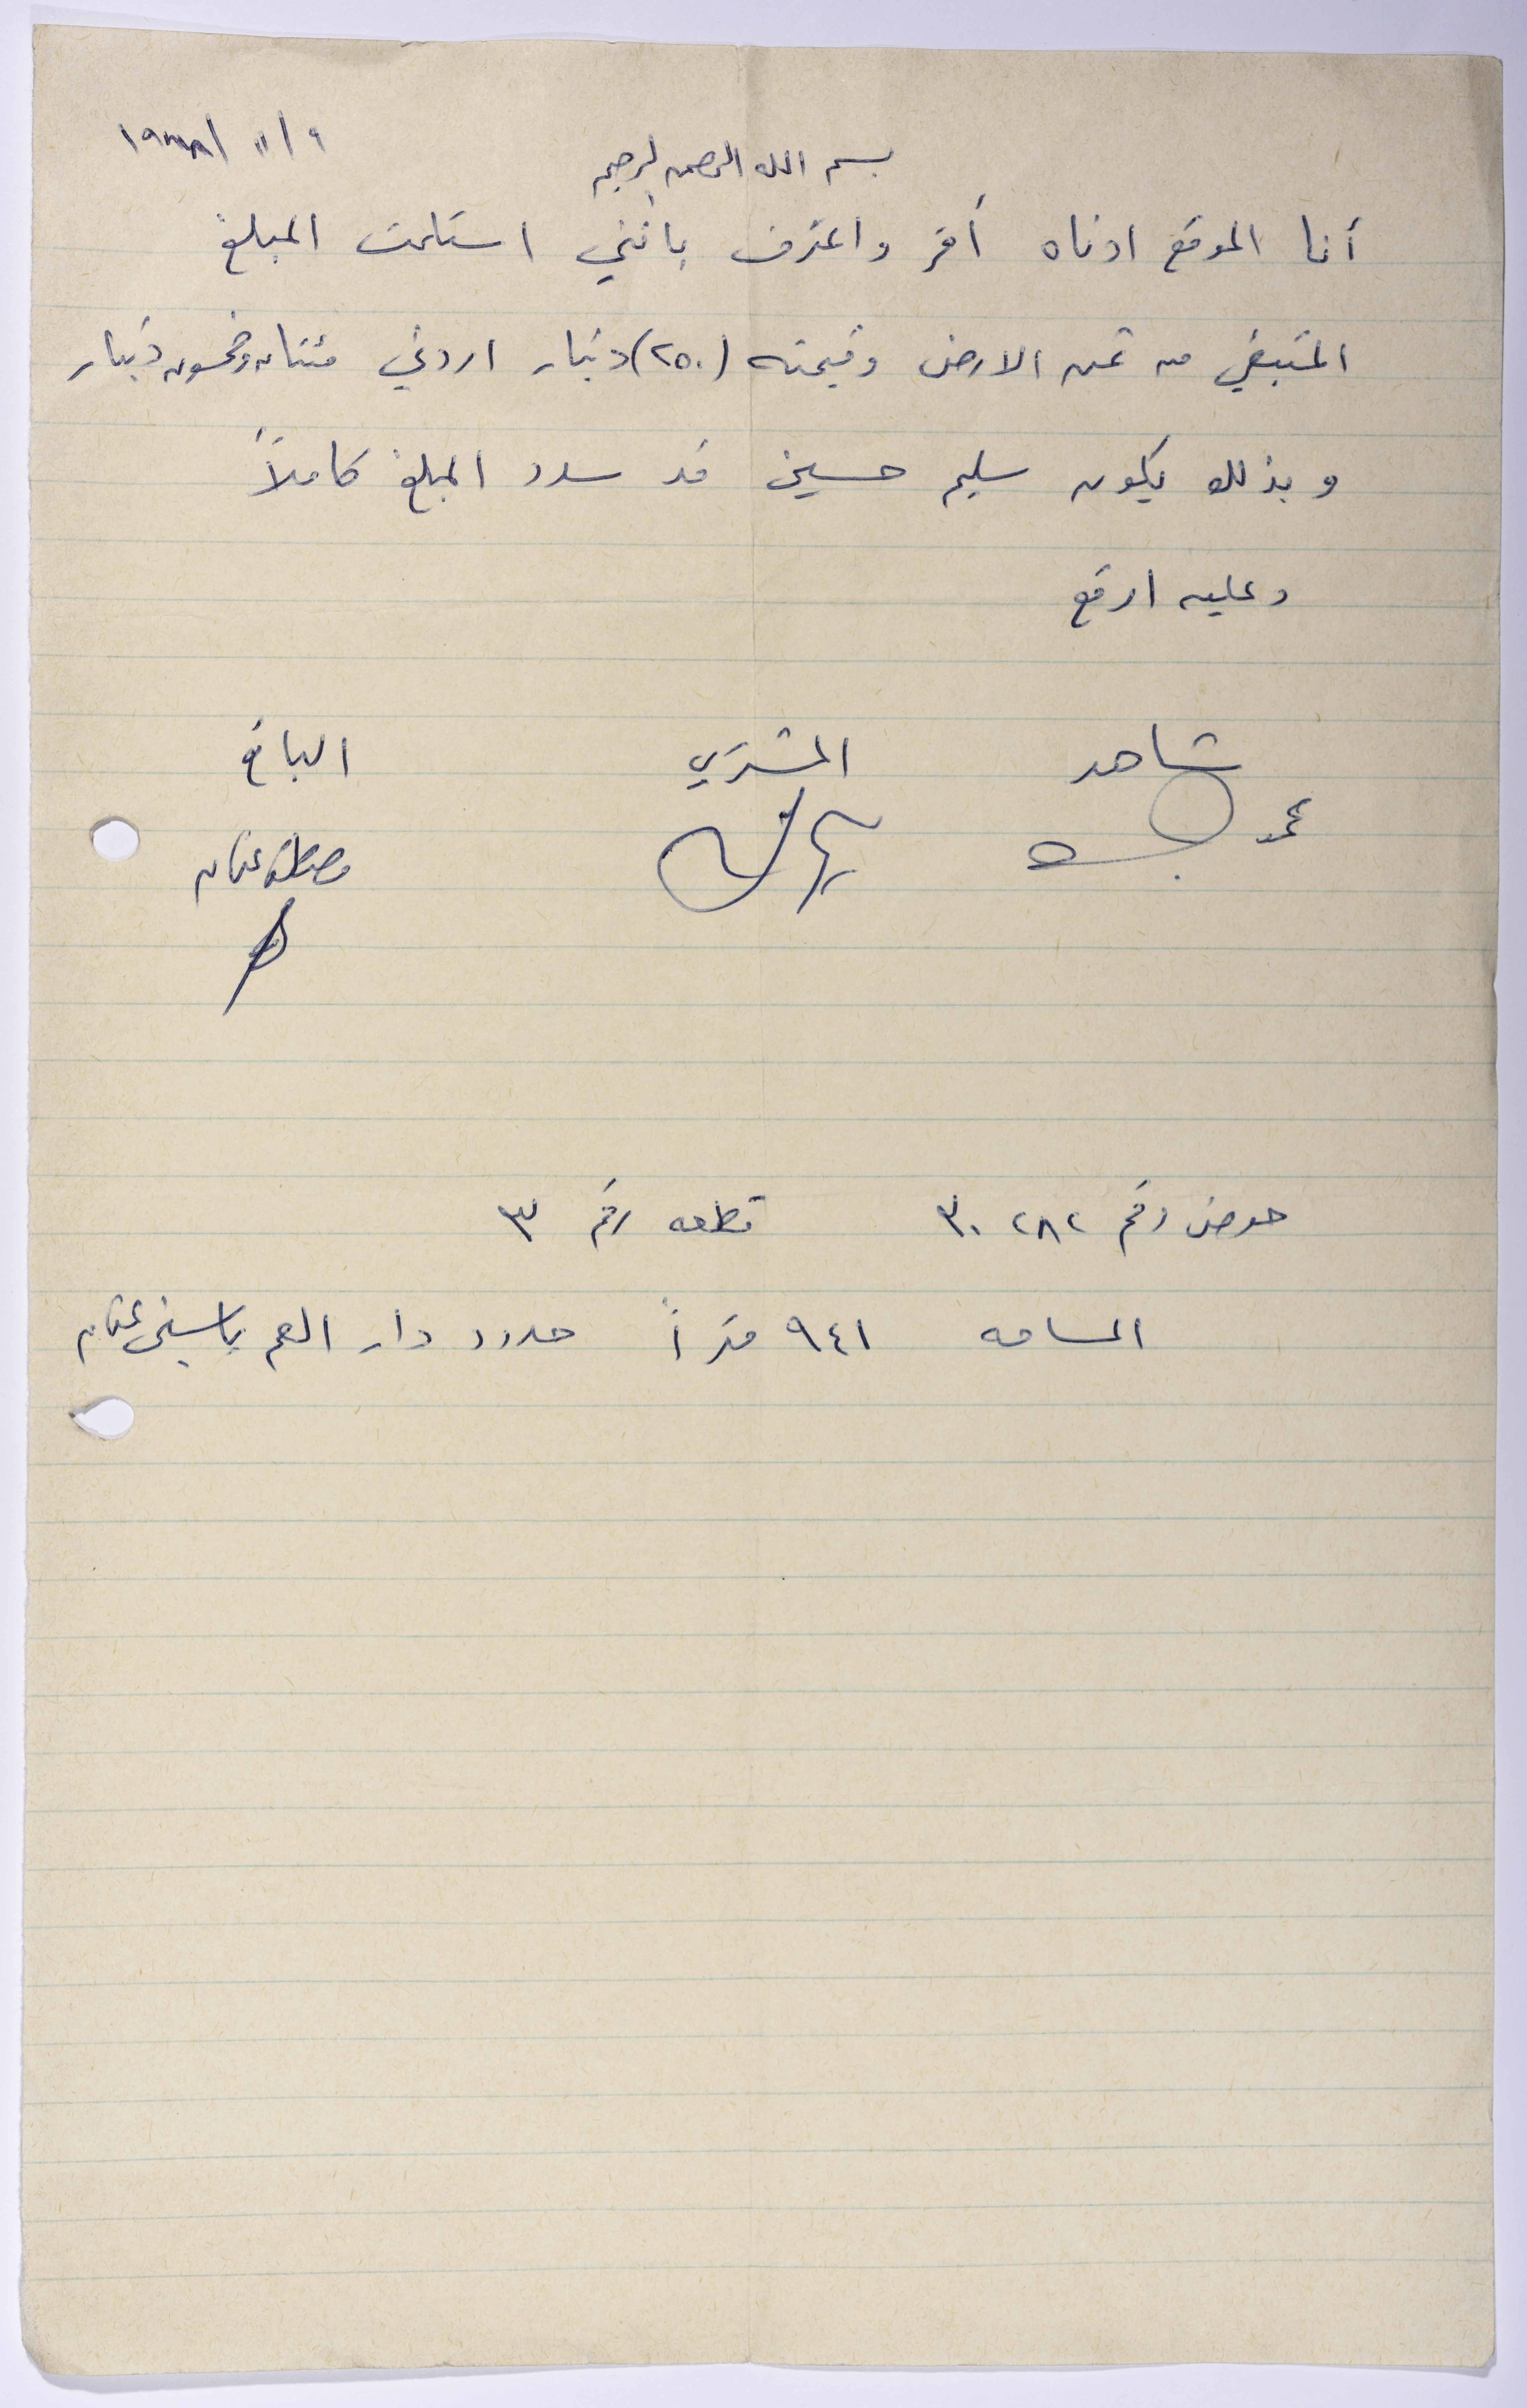 ٩ / ١١ / ١٩٧٨
بسم الله الرحمن الرحيم
أنا الموقع ادناه أقر واعترف بأنني استلمت المبلغ
المتبقي من ثمن الارض وقيمته (٢٥٠) دينار اردني مئتان وخمسون دينار
وبذلك يكون سليم حسين قد سدد المبلغ كاملاً
وعليه اوقع
شاهد المشتري البائع
مصطفى عثمان
حوض رقم ٣٠٢٨٢ قطعه رقم ٣
المساحه ٩٤١ متراً حدود دار العم ياسين عثمان